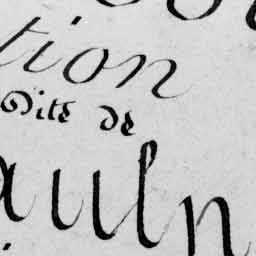 tion
Dite de
auln